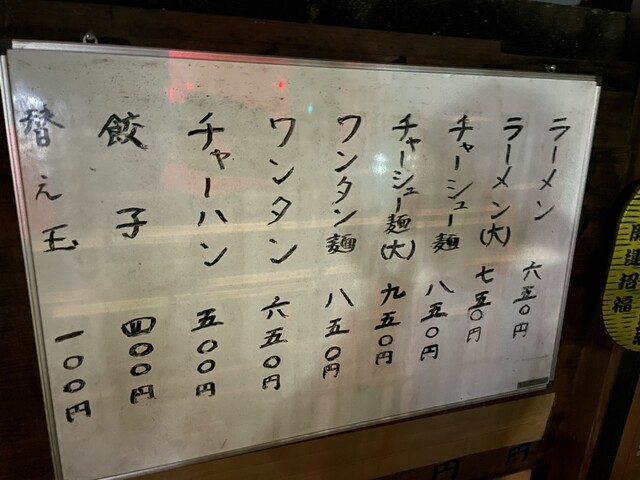 ラーメン 六五〇円
ラーメン(大) 七五〇円
チャーシュー麺 八五〇円
チャーシュー麺(大) 九五〇円
ワンタン麺 八五〇円
ワンタン 六五〇円
チャーハン 五〇〇円
餃子 四〇〇円
替え玉 一〇〇円
開運招福
円
円